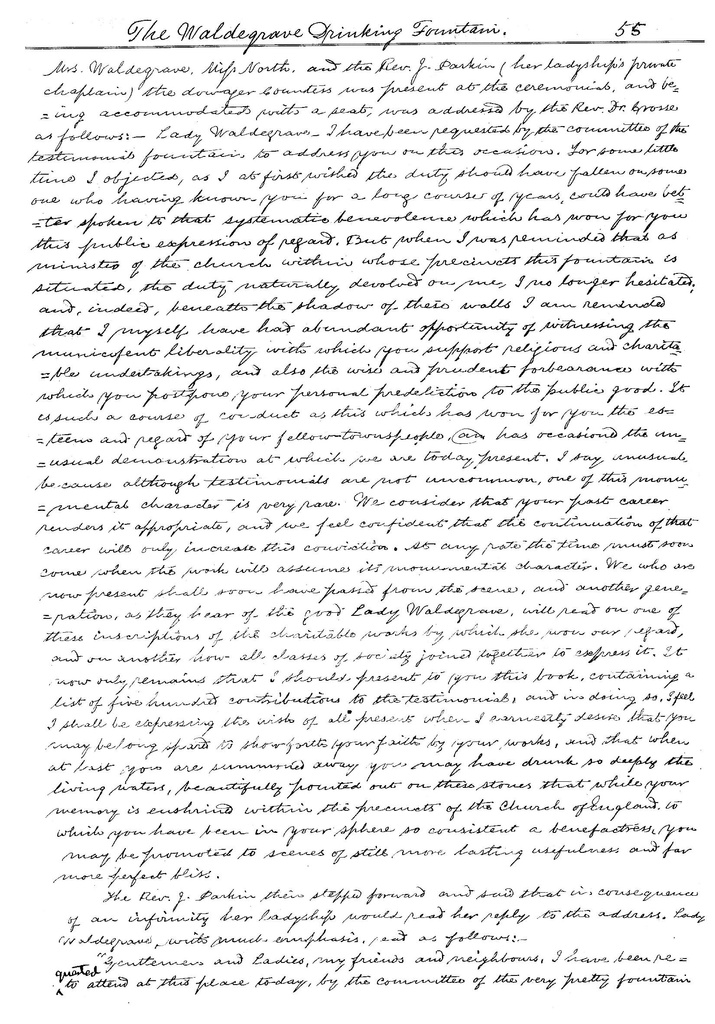 The Waldegrave Drinking Fountain. 55
Mrs. Waldegrave, Miss North, and the Rev. J. Parkin (her ladyship's private
chaplain) the dowager Countess was present at the ceremonial, and be=
=ing accommodated with a seat, was addressed by the Rev. Dr. Crosse
as follows:— Lady Waldegrave — I have been requested by the committee of the
testimonial fountain to address you on this occasion. For some little
time I objected, as I at first wished the duty should have fallen on some
one who having known you for a long course of years, could have bet=
=ter spoken to that systematic benevolence which has won for you
this public expression of regard. But when I was reminded that as
minister of the church within whose precincts this fountain is
situated, the duty naturally devolved on me, I no longer hesitated,
and, indeed, beneath the shadow of these walls I am reminded
that I myself have had abundant opportunity of witnessing the
municifent liberality with which you support religious and charita=
=ble undertakings, and also the wise and prudent forbearance with
which you postpone your personal predeliction to the public good. It
is such a course of conduct as this which has won for you the es=
=teem and regard of your fellow-townspeople, an has occasiond the un=
=usual demonstration at which we are today present. I say unusual
be-cause although testimonials are not uncommon, one of this monu
=mental character is very rare. We consider that your past career
renders it appropriate, and we feel confident that the continuation of that
career will only increase this conviction. At any rate the time must soon
come when the work will assume its monumental character. We who are
now present shall soon have passed from the scene, and another gene=
=ration, as they hear of the good Lady Waldegrave, will read on one of
these inscriptions of the charitable works by which she won our regard,
and on another how all classes of society joined together to express it. It
now only remains that I should present to you this book, containing a
list of five hundred contributions to the testimonial, and in doing so, I feel
I shall be expressing the wish of all present when I earnestly desire that you
may be long spard to show forth your faith by your works, and that when
at last you are summoned away you may have drunk so deeply the
living waters, beautifully pointed out on these stones that while your
memory is enshrind within the precincts of the Church of England, to
which you have been in your sphere so consistent a benefactress, you
may be promoted to scenes of still more lasting usefulness and far
more perfect bliss.
The Rev. J. Parkin then stepped forward and said that in consequence
of an infirmity her ladyship would read her reply to the address. Lady
Waldegrave, with much emphasis, read as follows:—
"Gentlemen and Ladies, my friends and neighbours, I have been re=
quested
to attend at this place today, by the committee of the very pretty fountain